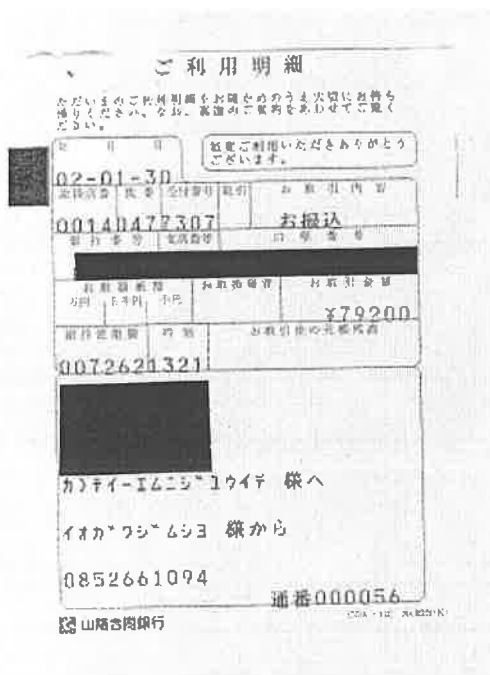 ご利用明細
ただいまのご利用明細をお確かめのうえ大切にお持ち
帰りください。なお、裏面のご案内をあわせてご覧く
ださい。
年 月 日
毎度ご利用いただきありがとう
ございます。
02-01-30
取扱店番 機番 受付番号 取引 お取引内容
00140477307 お振込
銀行番号 支店番号 口座番号
お取引金額
万円 千円
¥79200
時刻
0072621321
カ)テイ-エムニジユウイチ 様へ
イオガワジムシヨ 様から
0852661094
通番000056
山陰合同銀行